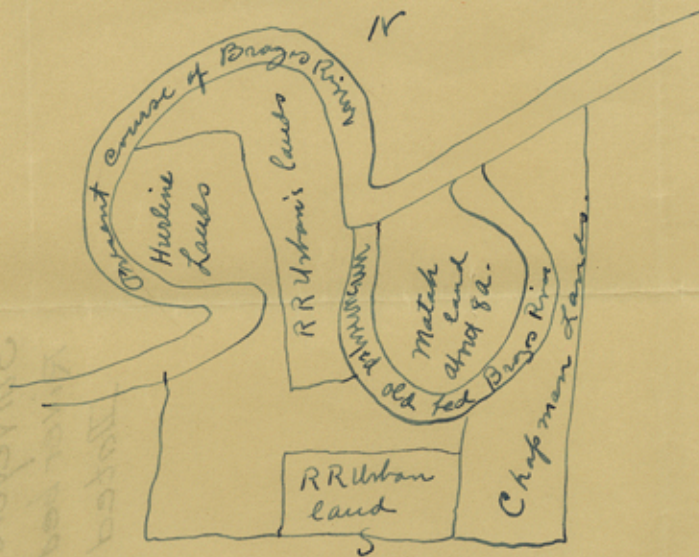 N
Present Course of Brazos River
Hurline
Lands
RR Urban's lands
Match
land
about 8a.
old bed Brazos River
Chapman Lands.
RR Urban
land
S